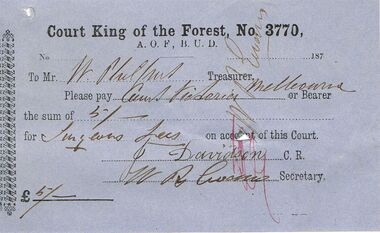 Court King of the Forest, No. 3770,
A. O. F., B. U. D.
No 187
To Mr. W. Treasurer, Melbourne
Please pay Court Victoria or Bearer
the sum of 5/-
for Surgeons Fees on account of this Court.
J Davidson C. R.
W R Evans Secretary.
£ 5/-